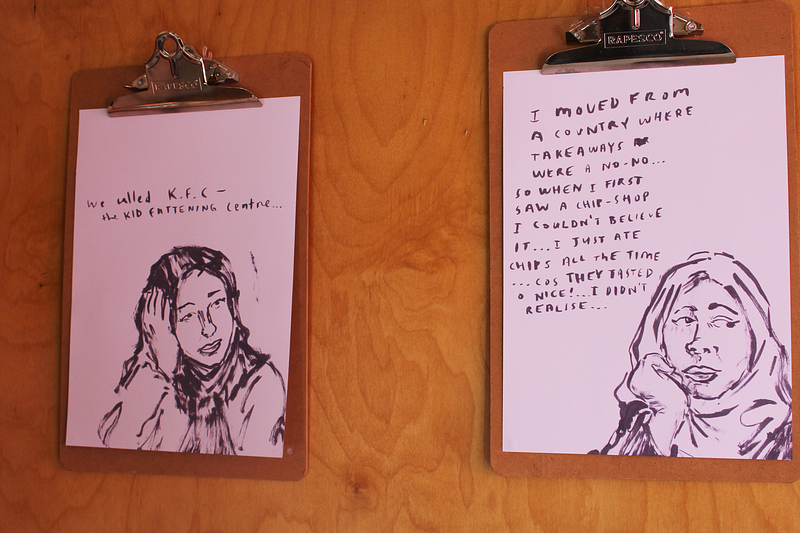 RAPESCO
we called K.F.C –
the KID FATTENING centre...
RAPESCO
I MOVED FROM
A COUNTRY WHERE
TAKEAWAYS
WERE A NO-NO...
SO WHEN I FIRST
SAW A CHIP-SHOP
I COULDN'T BELIEVE
IT... I JUST ATE
CHIPS ALL THE TIME
... COS THEY TASTED
O NICE!... I DIDN'T
REALISE...